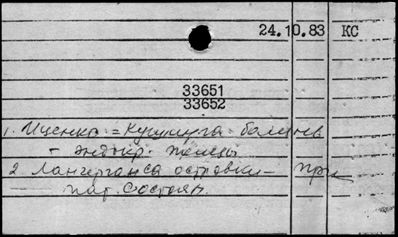 24.10.83 КС
33651
33652
1. Иценко = Кушинга болезнь
- эндокр. железы
2 Лангерганса островки - при
пат. состоян.